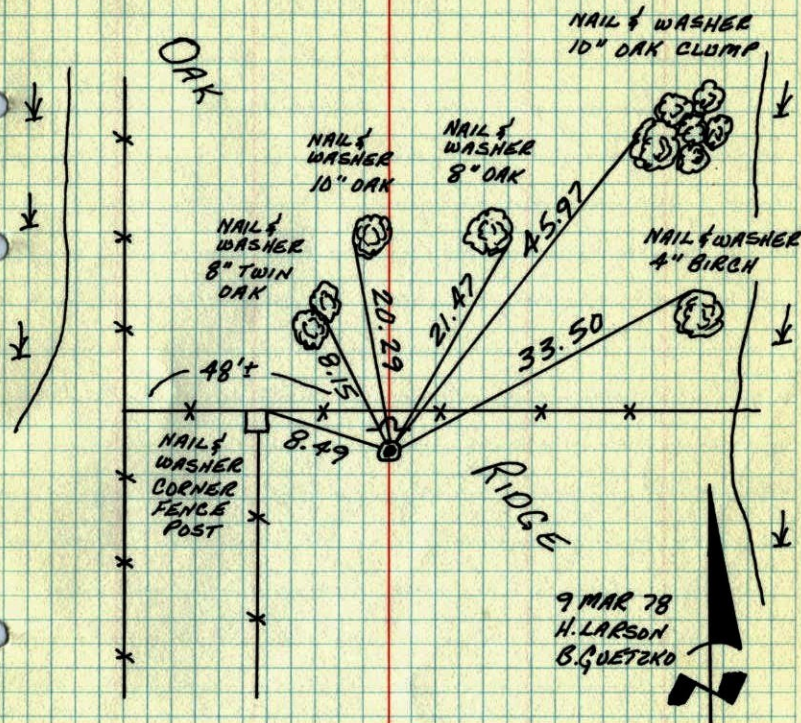 NAIL & WASHER
10" OAK CLUMP
OAK
NAIL &
WASHER
10" OAK
NAIL &
WASHER
8" OAK
NAIL &
WASHER
8" TWIN
OAK
NAIL & WASHER
4" BIRCH
45.97
21.47
20.29
33.50
8.15
48'±
8.49
NAIL &
WASHER
CORNER
FENCE
POST
RIDGE
9 MAR 78
H. LARSON
B. GUETZKO